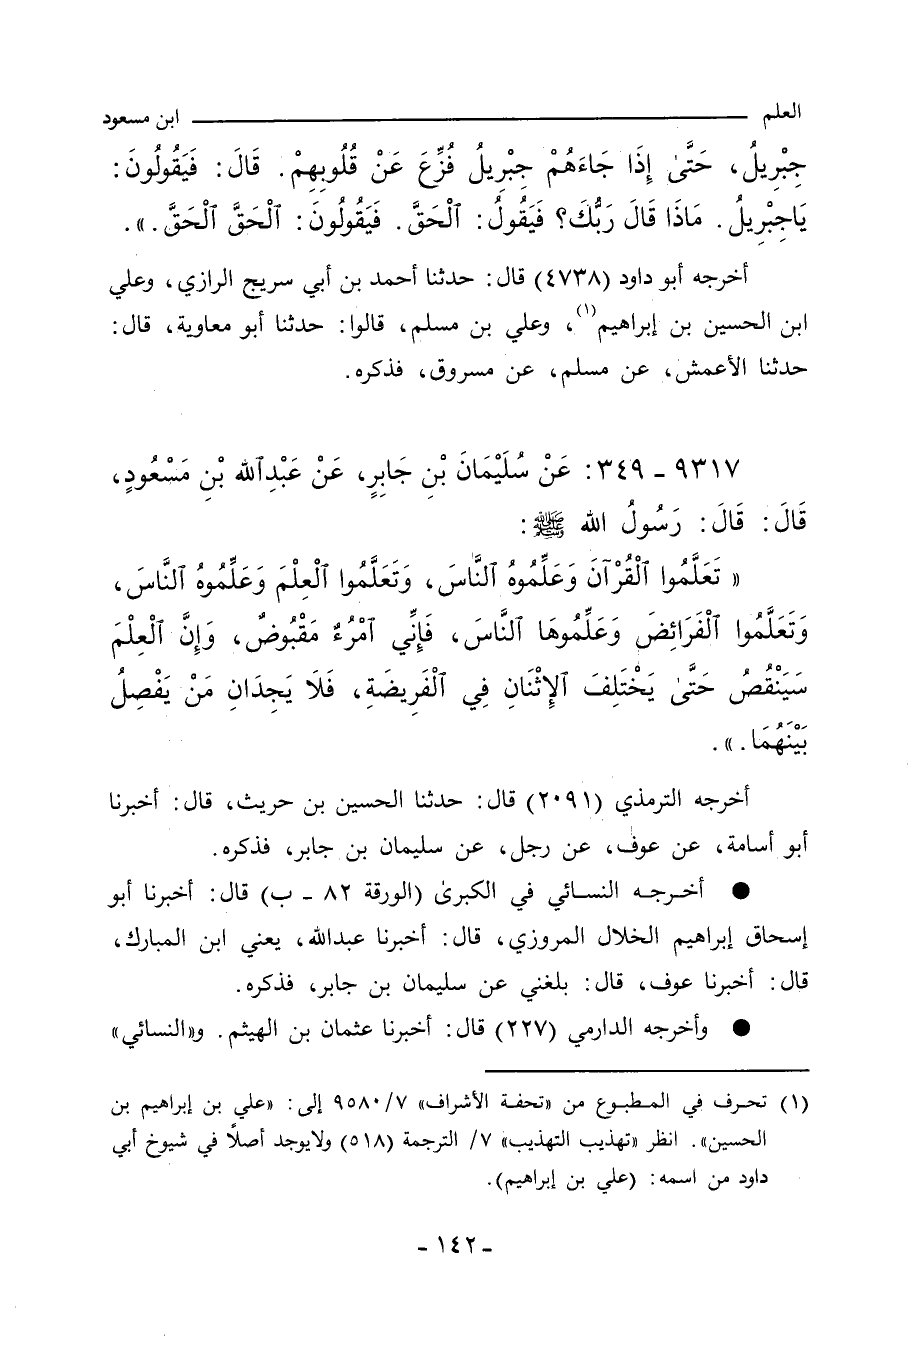 العلم ــــــــــ ابن مسعود
جِبْرِيلُ، حَتَّىٰ إِذَا جَاءَهُمْ جِبْرِيلُ فُزِّعَ عَنْ قُلُوبِهِمْ. قَالَ: فَيَقُولُونَ:
يَاجِبْرِيلُ. مَاذَا قَالَ رَبُّكَ؟ فَيَقُولُ: ٱلْحَقَّ. فَيَقُولُونَ: ٱلْحَقَّ ٱلْحَقَّ.».
أخرجه أبو داود (٤٧٣٨) قال: حدثنا أحمد بن أبي سريج الرازي، وعلي
ابن الحسين بن إبراهيم(١)، وعلي بن مسلم، قالوا: حدثنا أبو معاوية، قال:
حدثنا الأعمش، عن مسلم، عن مسروق، فذكره.
٩٣١٧ - ٣٤٩: عَنْ سُلَيْمَانَ بْنِ جَابِرٍ، عَنْ عَبْدِٱللهِ بْنِ مَسْعُودٍ،
قَالَ: قَالَ: رَسُولُ الله ﷺ:
« تَعَلَّمُوا ٱلْقُرْآنَ وَعَلِّمُوهُ ٱلنَّاسَ، وَتَعَلَّمُوا ٱلْعِلْمَ وَعَلِّمُوهُ ٱلنَّاسَ،
وَتَعَلَّمُوا ٱلْفَرَائِضَ وَعَلِّمُوهَا ٱلنَّاسَ، فَإِنِّي ٱمْرُءٌ مَقْبُوضٌ، وَإِنَّ ٱلْعِلْمَ
سَيَنْقُصُ حَتَّىٰ يَخْتَلِفَ ٱلإِثْنَانِ فِي ٱلْفَرِيضَةِ، فَلَا يَجِدَانِ مَنْ يَفْصِلُ
بَيْنَهُمَا.».
أخرجه الترمذي (٢٠٩١) قال: حدثنا الحسين بن حريث، قال: أخبرنا
أبو أسامة، عن عوف، عن رجل، عن سليمان بن جابر، فذكره.
● أخرجه النسائي في الكبرىٰ (الورقة ٨٢ - ب) قال: أخبرنا أبو
إسحاق إبراهيم الخلال المروزي، قال: أخبرنا عبدالله، يعني ابن المبارك،
قال: أخبرنا عوف، قال: بلغني عن سليمان بن جابر، فذكره.
● وأخرجه الدارمي (٢٢٧) قال: أخبرنا عثمان بن الهيثم. و«النسائي»
(١) تحرف في المطبوع من «تحفة الأشراف» ٩٥٨٠/٧ إلى: «علي بن إبراهيم بن
الحسين». انظر «تهذيب التهذيب» ٧/ الترجمة (٥١٨) ولايوجد أصلاً في شيوخ أبي
داود من اسمه: (علي بن إبراهيم).
- ١٤٢ -